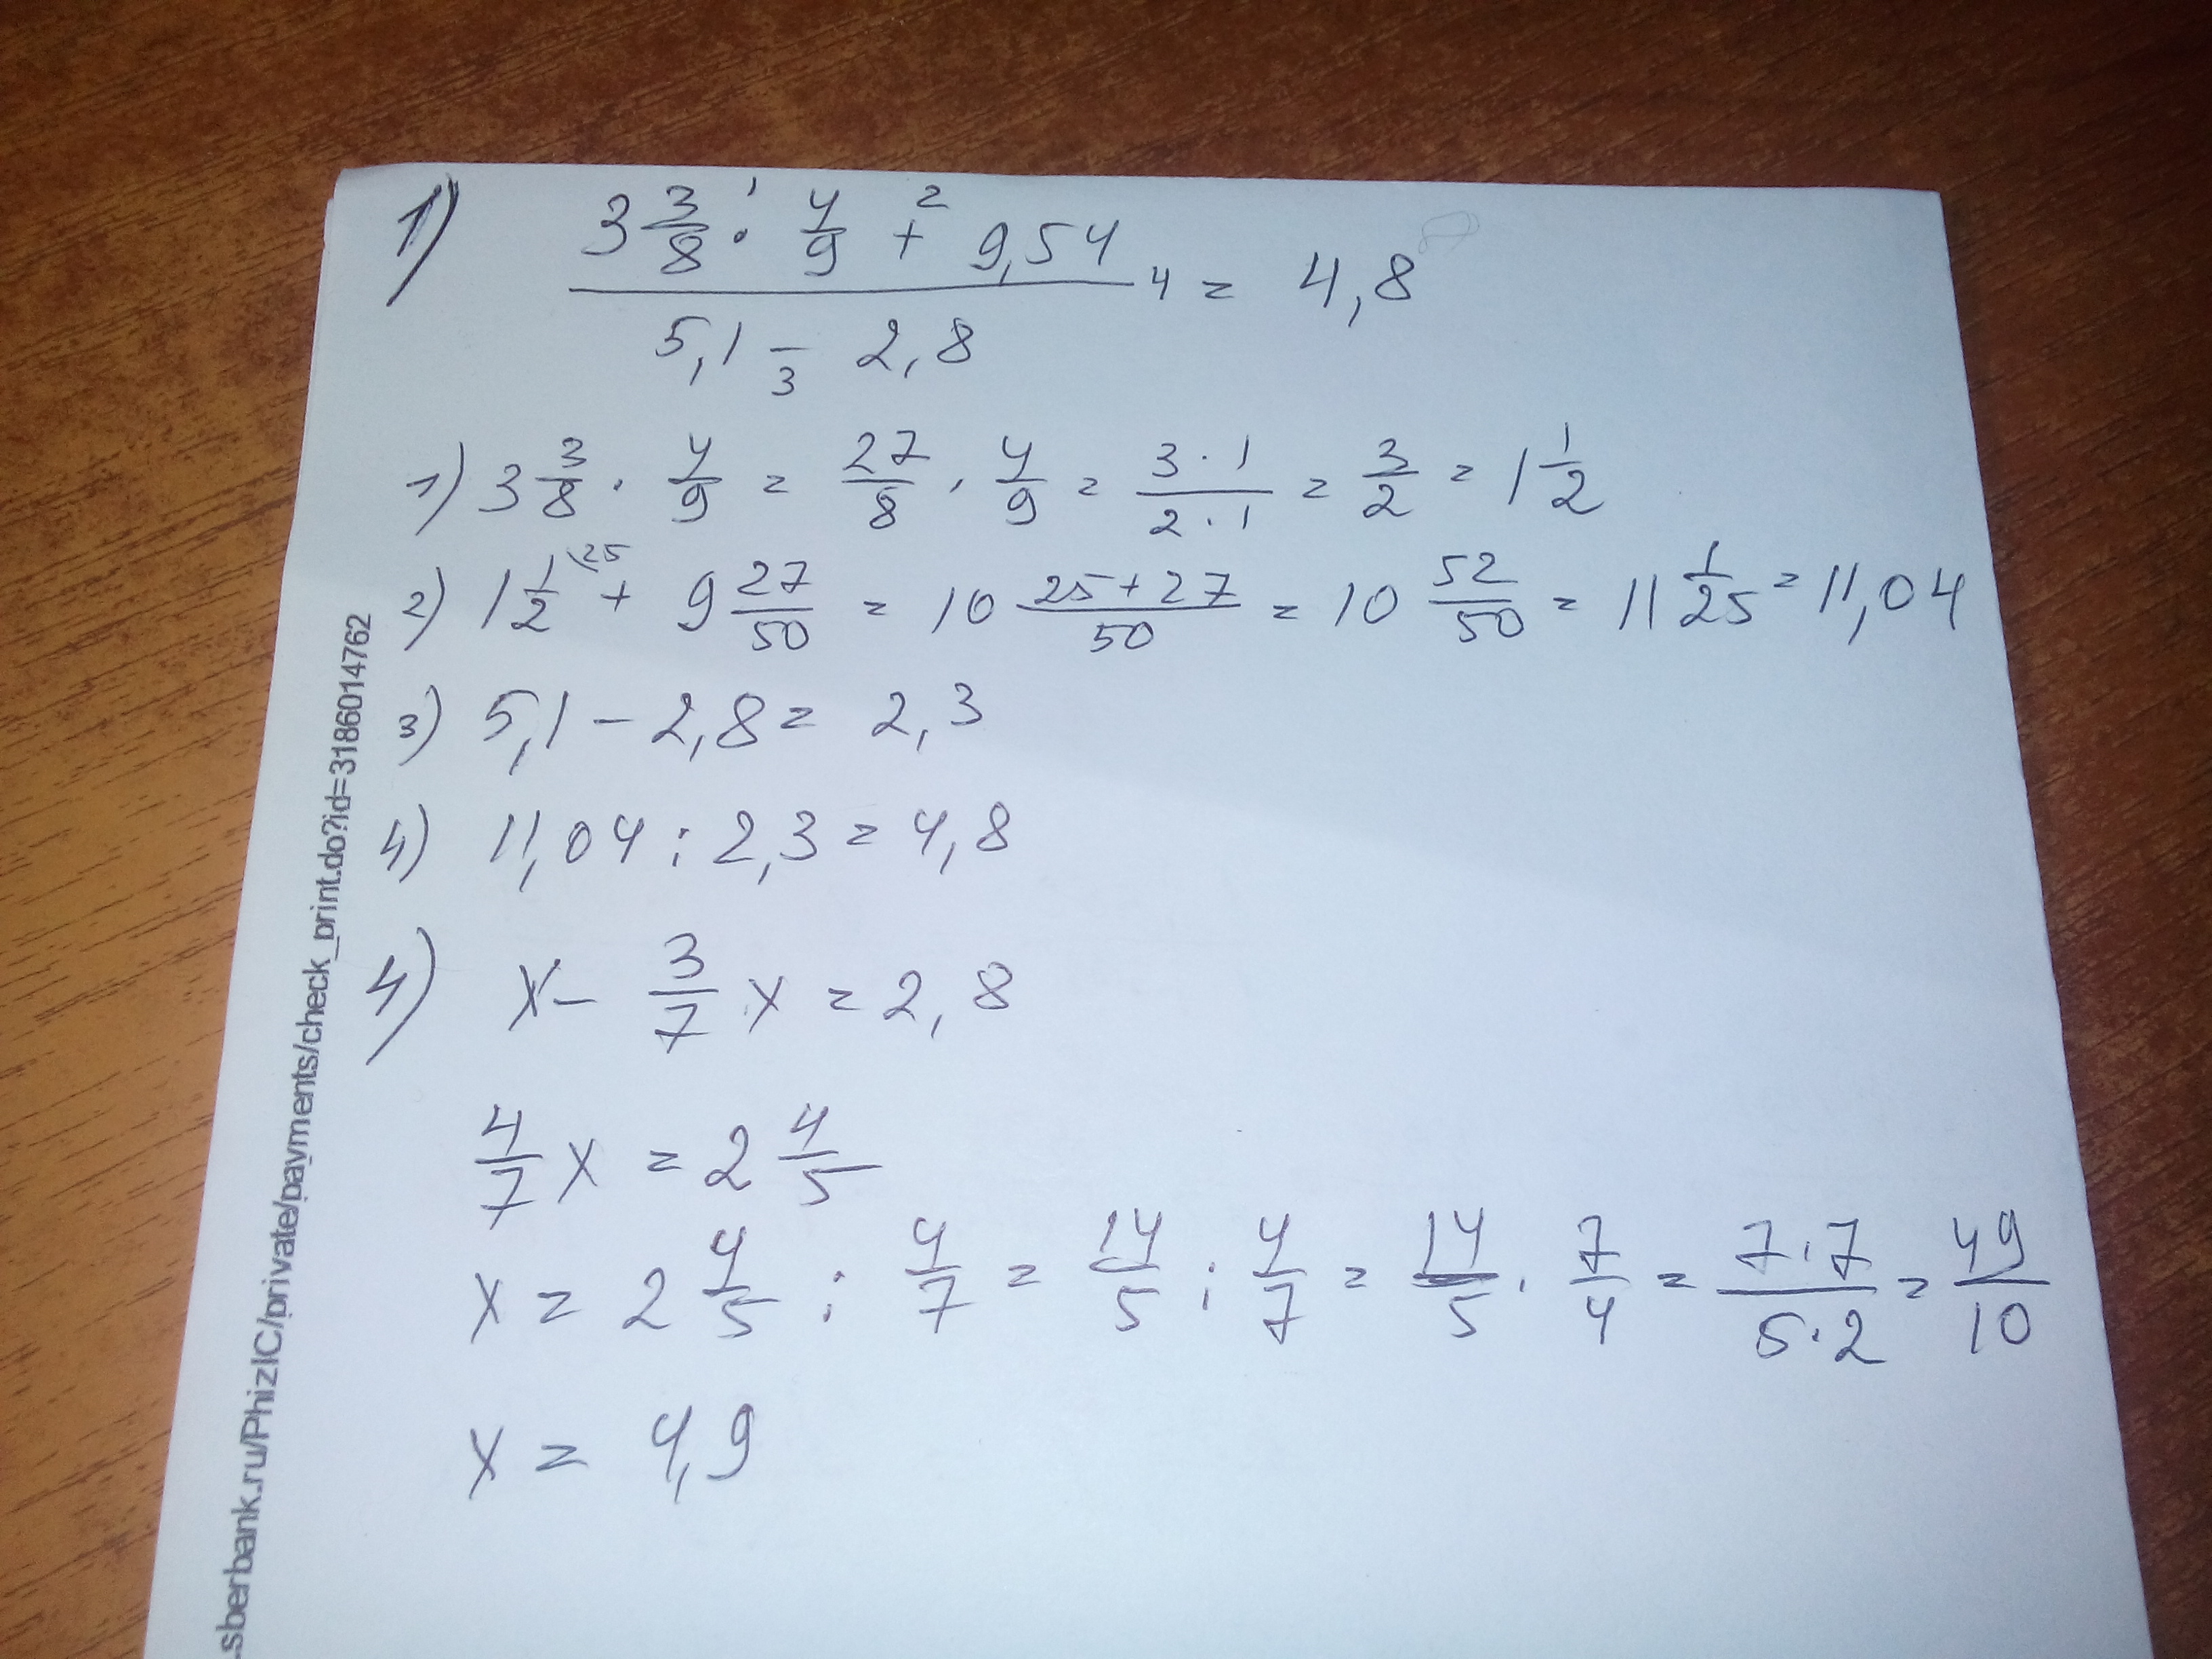 1) (3 3/8 · 4/9 + 9,54) / (5,1 - 2,8) = 4,8
1 2 3 4
1) 3 3/8 · 4/9 = 27/8 · 4/9 = (3·1)/(2·1) = 3/2 = 1 1/2
2) 1 1/2 \25 + 9 27/50 = 10 (25+27)/50 = 10 52/50 = 11 1/25 = 11,04
3) 5,1 - 2,8 = 2,3
4) 11,04 : 2,3 = 4,8
4) x - 3/7 x = 2,8
4/7 x = 2 4/5
x = 2 4/5 : 4/7 = 14/5 : 4/7 = 14/5 · 7/4 = (7·7)/(5·2) = 49/10
x = 4,9
.sberbank.ru/PhizIC/private/payments/check_print.do?id=3186014762